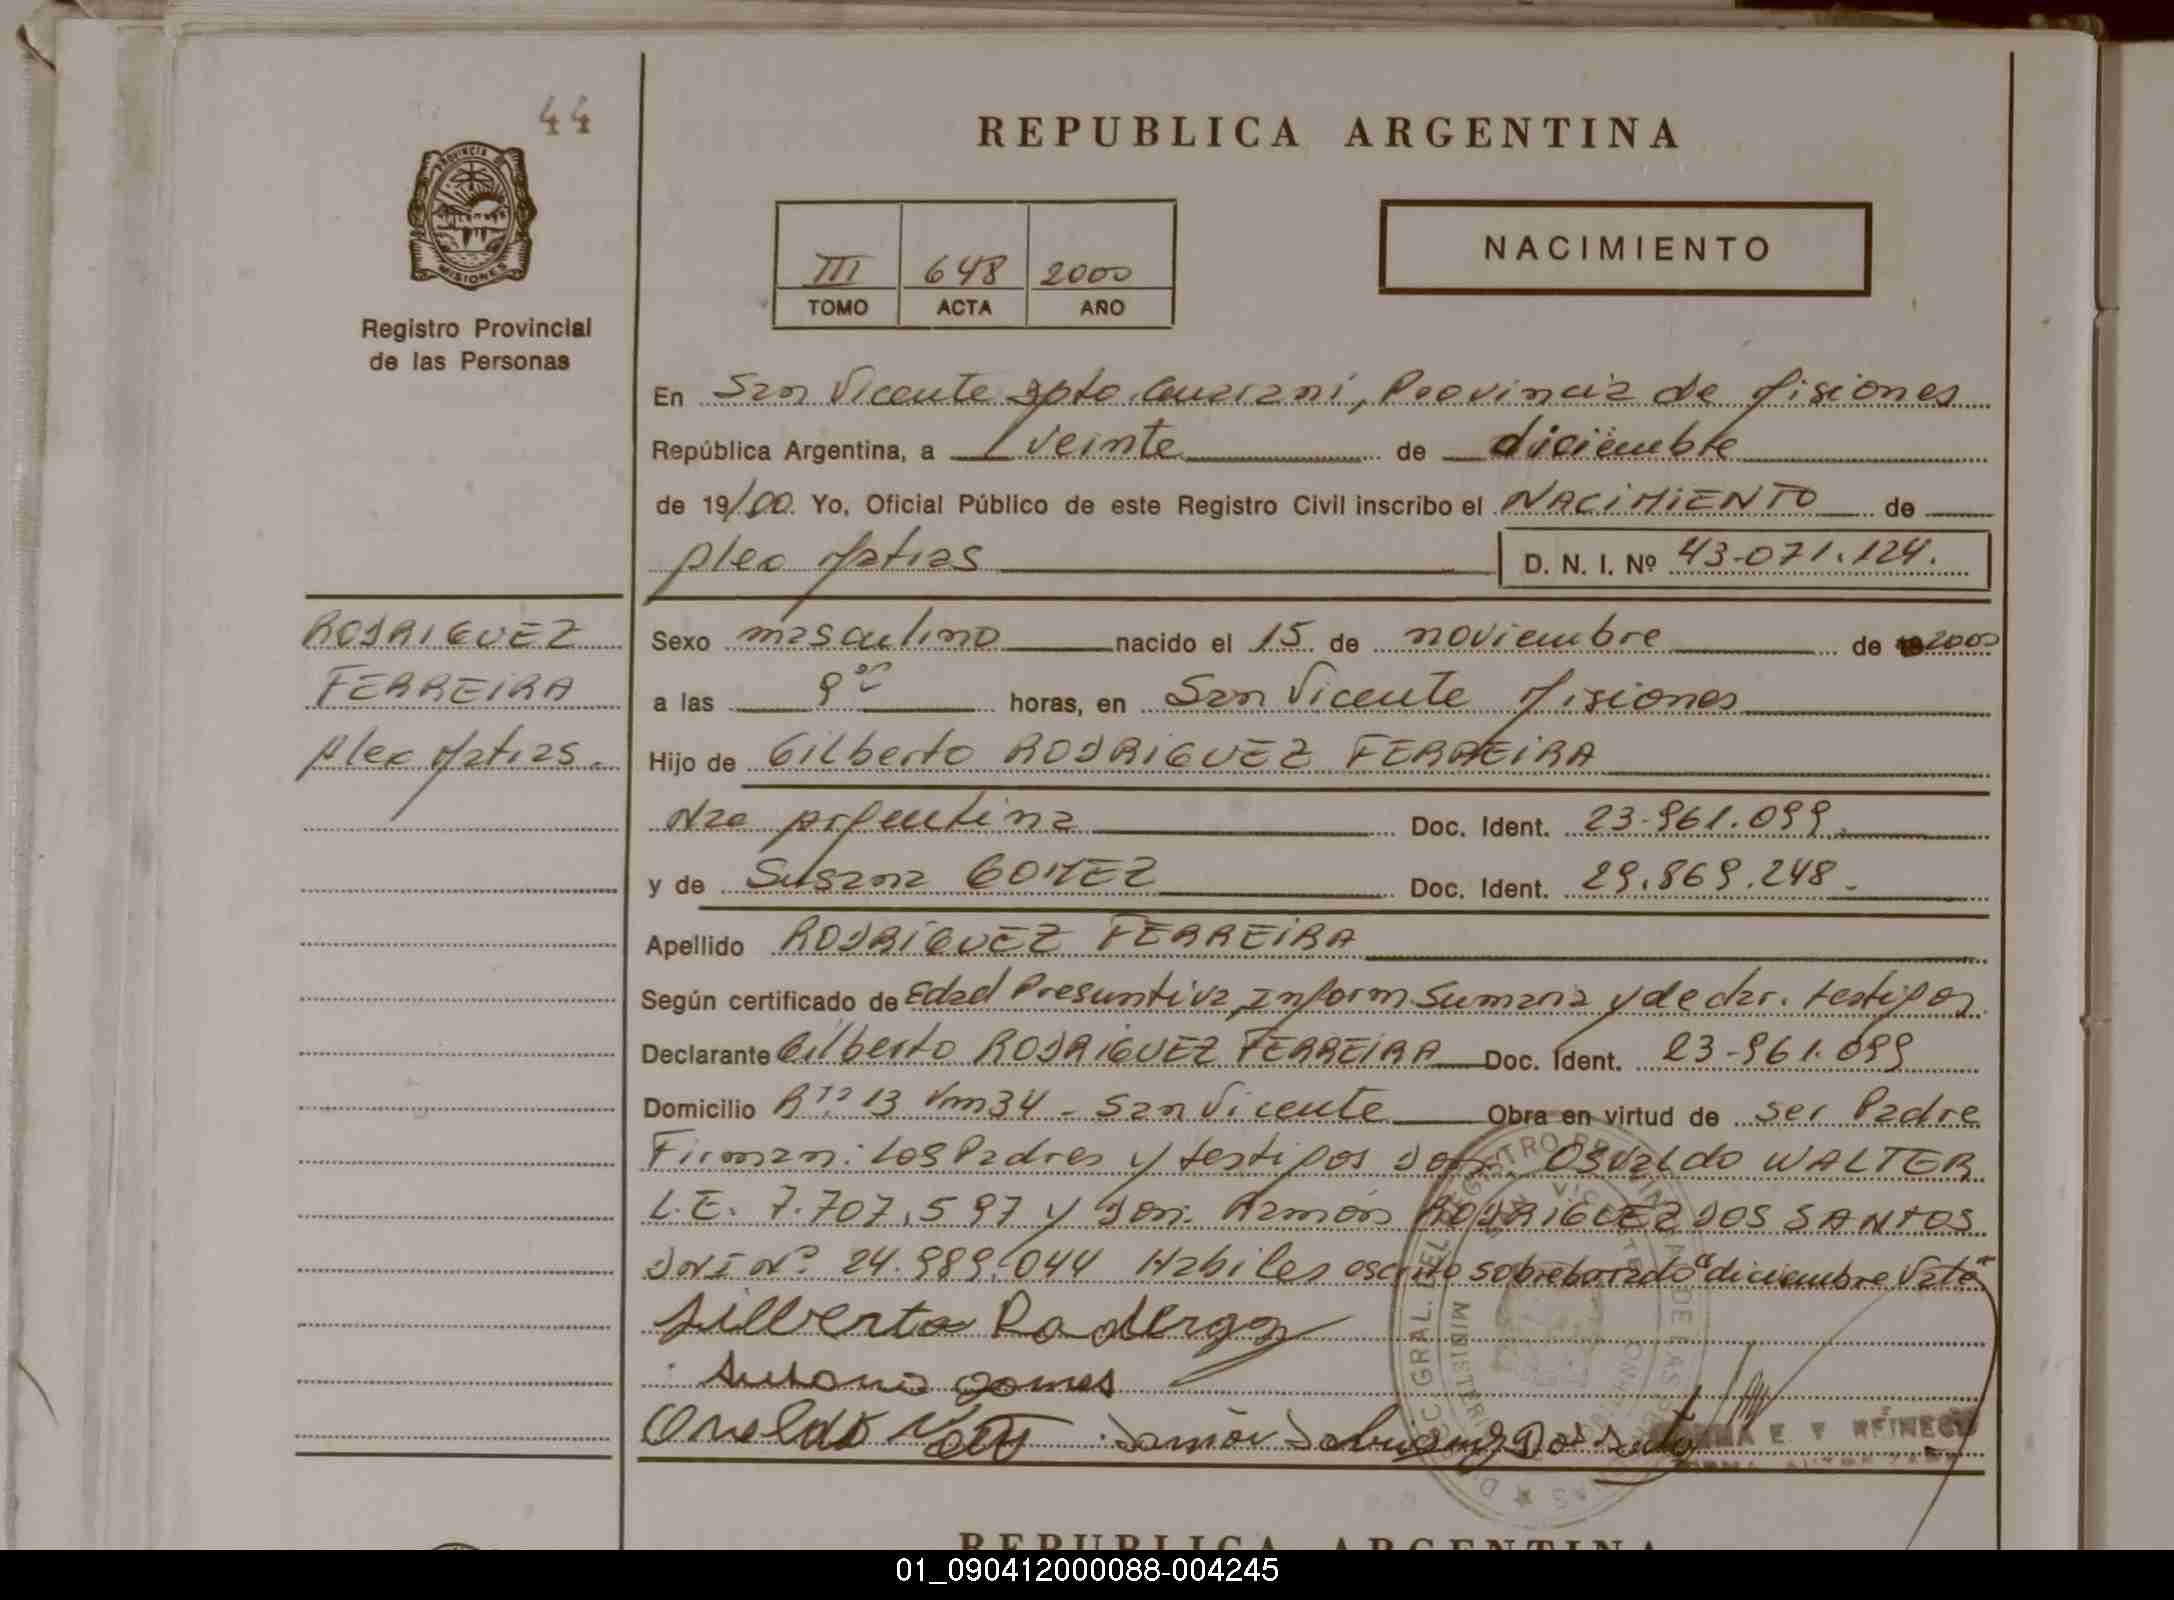 44
REPUBLICA ARGENTINA
PROVINCIA DE
MISIONES
III 648 2000
TOMO ACTA AÑO
NACIMIENTO
Registro Provincial
de las Personas
En San Vicente Dpto. Guarani, Provincia de Misiones
República Argentina, a veinte de diciembre
de 19/00. Yo, Oficial Público de este Registro Civil inscribo el NACIMIENTO de
Alex Matias D. N. I. Nº 43.071.124.
RODRIGUEZ
FERREIRA
Alex Matias.
Sexo masculino nacido el 15 de noviembre de 2000
a las 9 horas, en San Vicente Misiones
Hijo de Gilberto RODRIGUEZ FERREIRA
Nac Argentina Doc. Ident. 23.961.099
y de Susana GOMEZ Doc. Ident. 29.869.248.
Apellido RODRIGUEZ FERREIRA
Según certificado de Edad Presuntiva, Inform Sumaria y declar. testigos
Declarante Gilberto RODRIGUEZ FERREIRA Doc. Ident. 23.961.099
Domicilio 13 Km 34 - San Vicente Obra en virtud de ser Padre
Firman: Los Padres y testigos Don. Osvaldo WALTER
L.E. 7.707.597 y Don. Ramón RODRIGUEZ DOS SANTOS
DNI Nº 24.989.044 Habiles escrito sobreborrado "diciembre Vale"
Gilberto
Susana gomes
REPUBLICA ARGENTINA
01_090412000088-004245